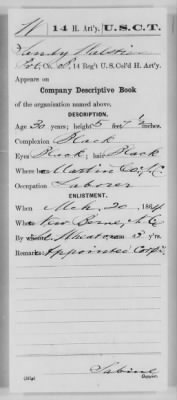 H 14 H. Art'y. U.S.C.T.
Co. B, 14 Reg't U.S. Col'd H. Art'y.
Appears on
Company Descriptive Book
of the organization named above.
DESCRIPTION.
Age 30 years; height 5 feet 7 1/2 inches.
Complexion Black
Eyes Black; hair Black
Where born Martin Co, N.C.
Occupation Laborer
ENLISTMENT.
When Mch. 20, 1864
Where New Berne, N.C.
By whom Wheaton term 3 y'rs.
Remarks: Appointed Corp'l
Sabine
Copyist.